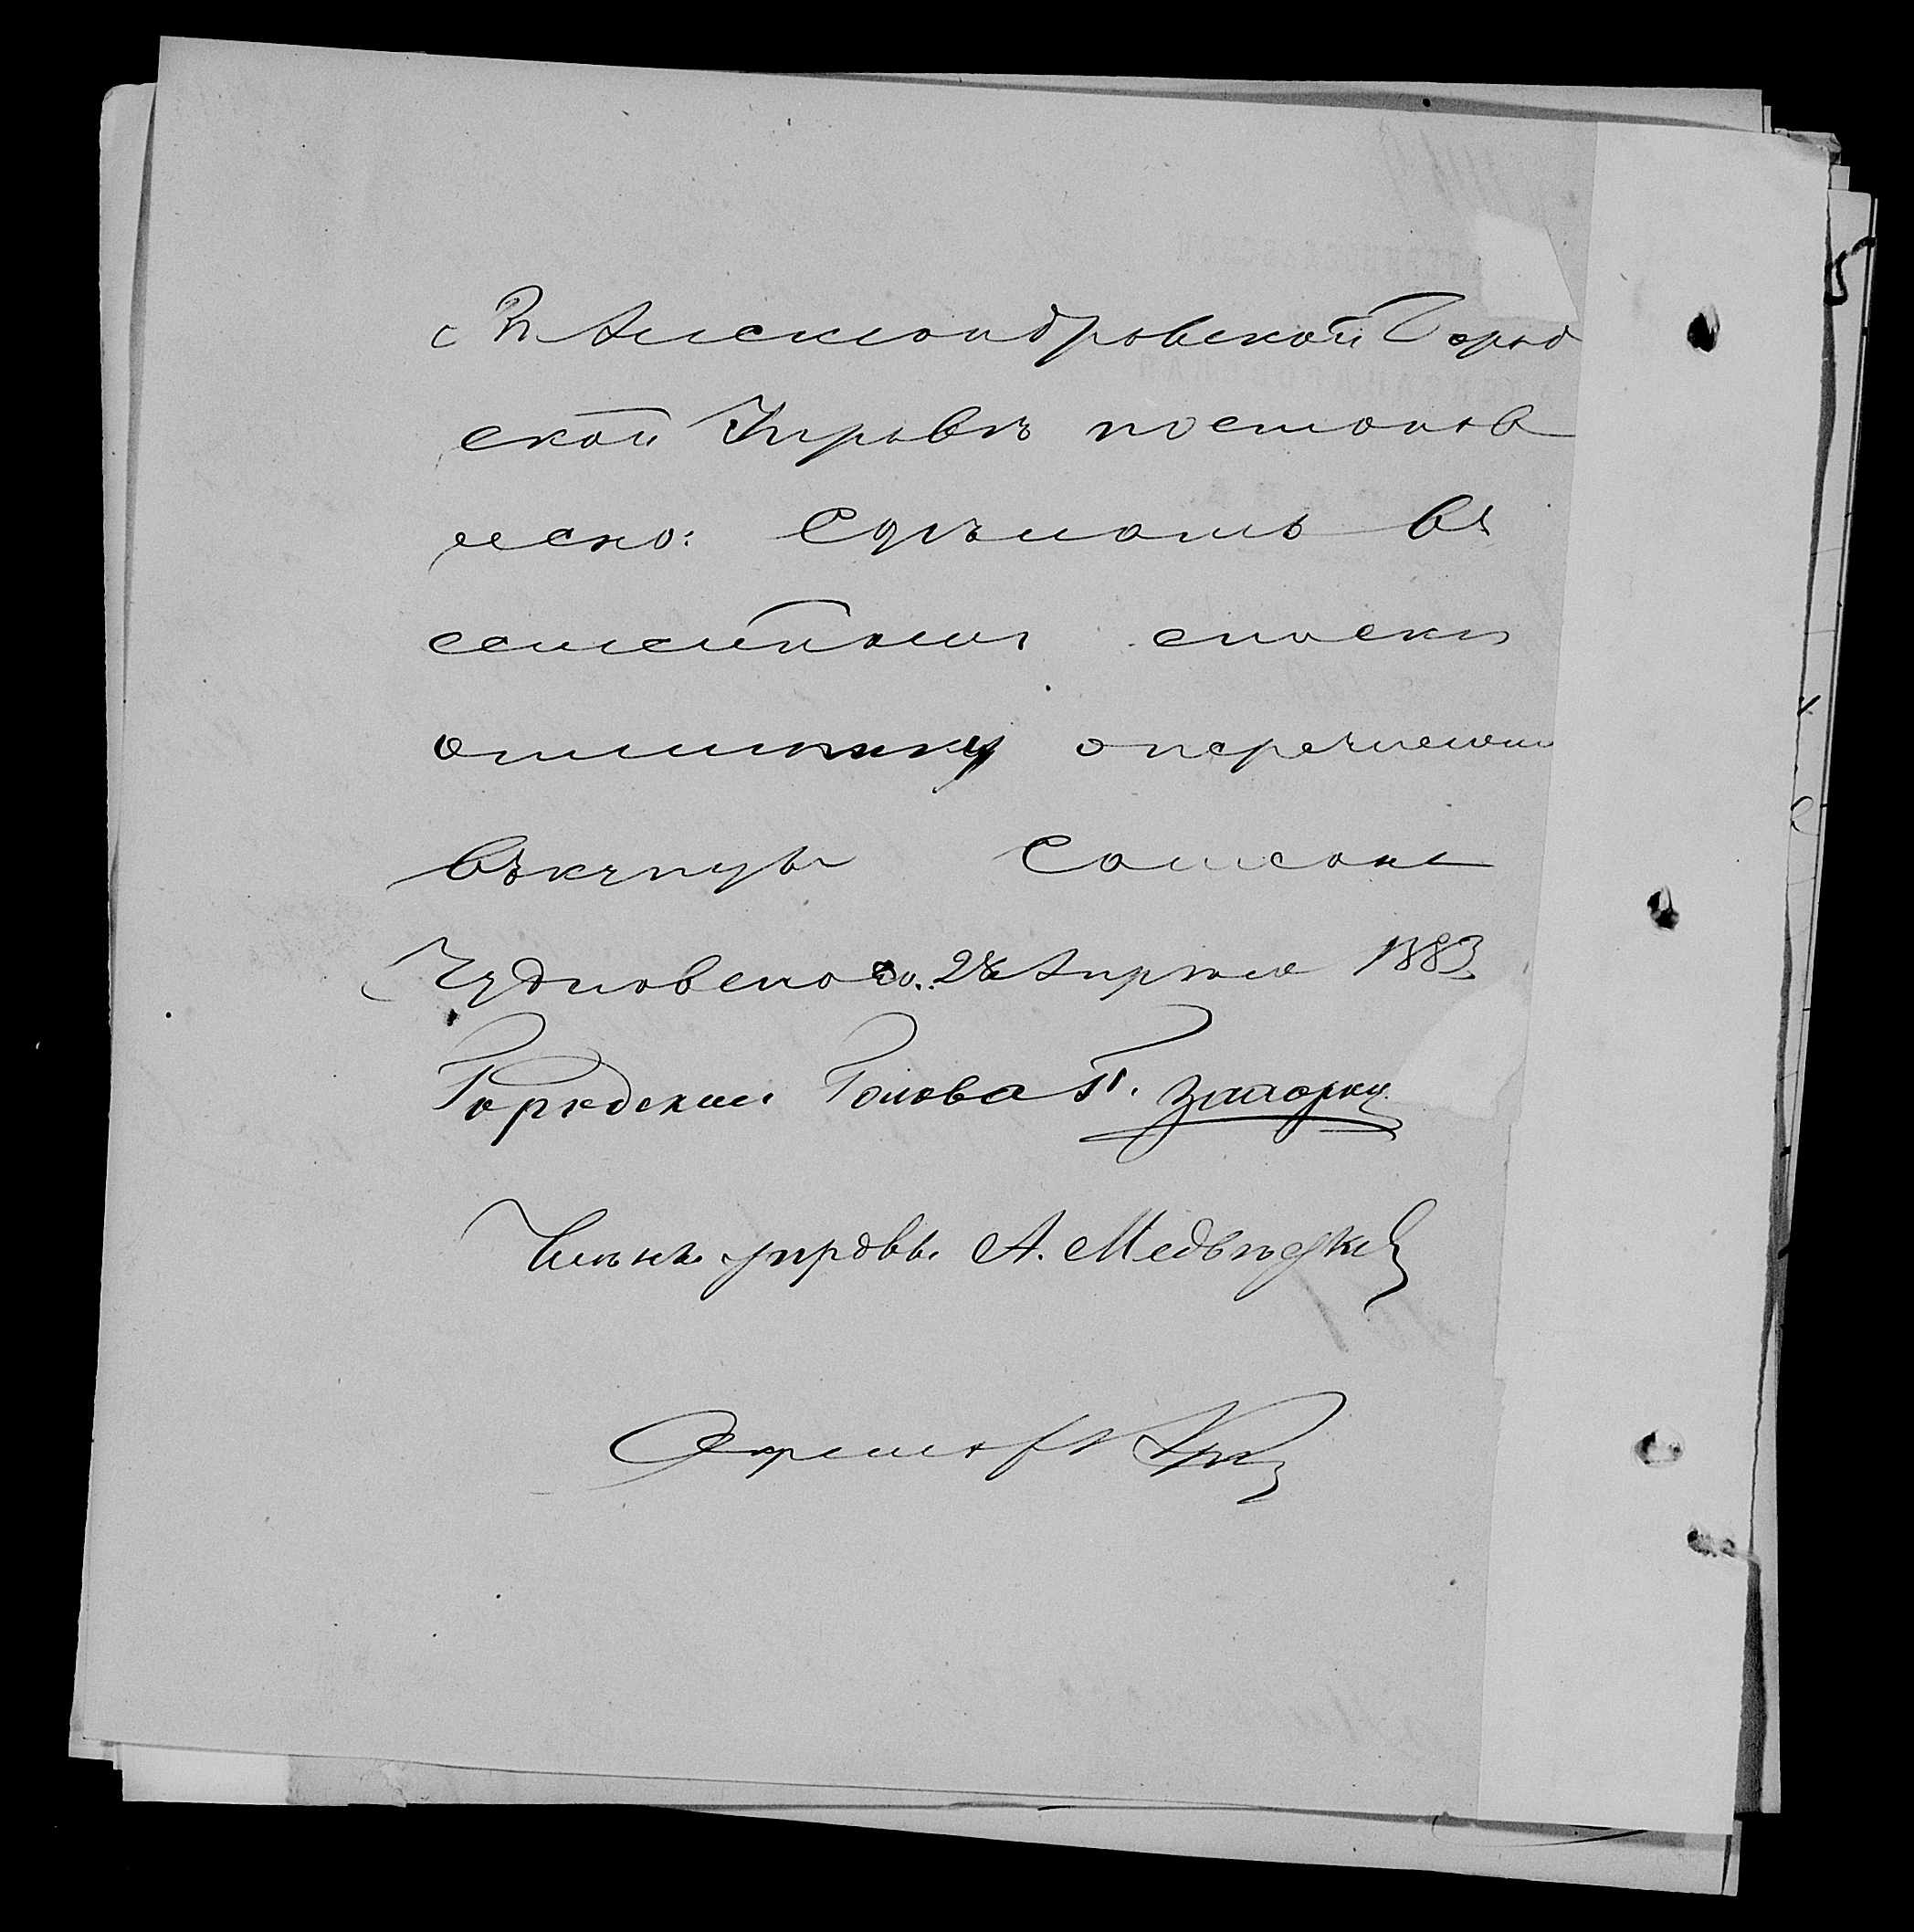 Въ Александровской Город
ской Управѣ постанов
лено: Сдѣлать въ
семейномъ списк
отмѣтку о перечислении
въ купцы Самсона
Чудновского. 28 Апрѣля 1883
Городской Голова
Членъ управы А. Медвѣд